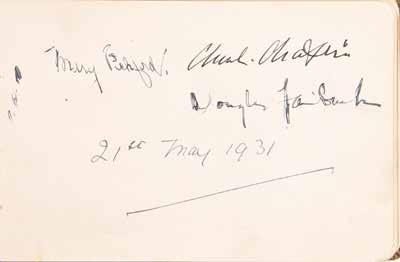 Mary Pickford. Charlie Chaplin
Douglas Fairbanks
21st May 1931